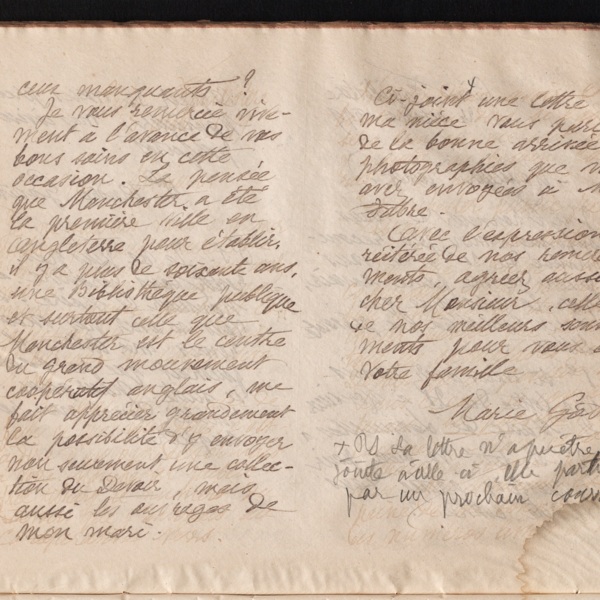 ceux manquants ?
Je vous remercie vive-
ment à l'avance de vos
bons soins en cette
occasion. La pensée
que Manchester a été
la première ville en
Angleterre pour établir,
il y a plus de soixante ans,
une Bibliothèque publique
et surtout celle que
Manchester est le centre
du grand mouvement
coopératif anglais, me
fait apprécier grandement
la possibilité d'y envoyer
non seulement une collec-
tion du Devoir, mais
aussi les ouvrages de
mon mari.
Ci-joint x une lettre
ma nièce vous
de la bonne arrivée
photographies que
avez envoyées à
Fabre.
Avec l'expression
réitérée de nos
ments, agréez aussi
cher Monsieur, celle
de nos meilleurs
ments pour vous
votre famille
Marie
x PS La lettre n'a pu être
jointe à celle-ci, elle
par un prochain